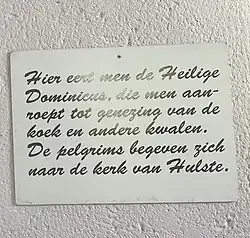 Hier eert men de Heilige
Dominicus, die men aan-
roept tot genezing van de
koek en andere kwalen.
De pelgrims begeven zich
naar de kerk van Hulste.